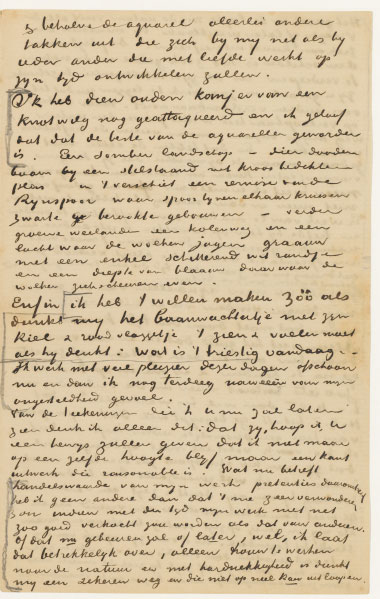 zijn behalve de aquarel allerlei andere
takken uit die zich by my net als by
ieder ander die met liefde werkt op
zyn tyd ontwikkelen zullen.
Ik heb dien ouden kanjer van een
knotwilg nog geattaqueerd en ik geloof
dat dat de beste van de aquarellen geworden
is. Een somber landschap – dien dooden
boom by een stilstaand met kroos bedekten
plas in 't verschiet een remise van de
Rynspoor waar spoorlynen elkaar kruisen
zwart berookte gebouwen – verder
groene weilanden een kolenweg en een
lucht waar de wolken jagen graauw
met een enkel schitterend wit randje
en een diepte van blaauw daar waar de
wolken even.
Enfin ik heb 't willen maken zóó als
dunkt my het baanwachtertje met zyn
kiel & rood vlaggetje 't zien & voelen moet
als hy denkt: wat is 't triestig vandaag –.
Ik werk met veel plezier dezer dagen ofschoon
nu en dan ik nog terdeeg naweeën van myn
ongesteldheid gevoel.
Van de teekeningen die ik U nu zal laten
zien denk ik alleen dit: dat zy, hoop ik U
een bewys zullen geven dat ik niet maar
op een zelfde hoogte blyf maar een kant
uitwerk die raisonable is. Wat nu betreft
handelswaarde van myn werk pretenties daaromtrent
heb ik geen andere dan dat 't me zeer verwonderen
zou indien met den tyd myn werk niet net
zoo goed verkocht zou worden als dat van anderen.
of dat nu gebeuren zal of later, wel, ik laat
dat betrekkelyk over, alleen trouw te werken
naar de natuur en met hardnekkigheid is dunkt
my een zekeren weg en die niet op niet kan uitloopen.